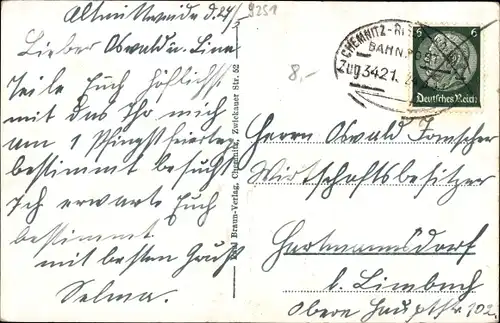 Altmittweida d. 27/
9251
Lieber Oswald u. Line
Teile Euch höflichst
mit das Ihr mich
am 1 Pfingstfeiertag
bestimmt besucht
Ich erwarte Euch
bestimmt
mit besten Gruß
Selma.
Braun-Verlag, Chemnitz, Zwickauer Str. 52
8,-
CHEMNITZ-
BAHNPOST
Zug 3421
6 6
Deutsches Reich
Herrn Oswald
Wirtschaftsbesitzer
Hartmannsdorf
b. Limbach
Obere Hauptstr. 102